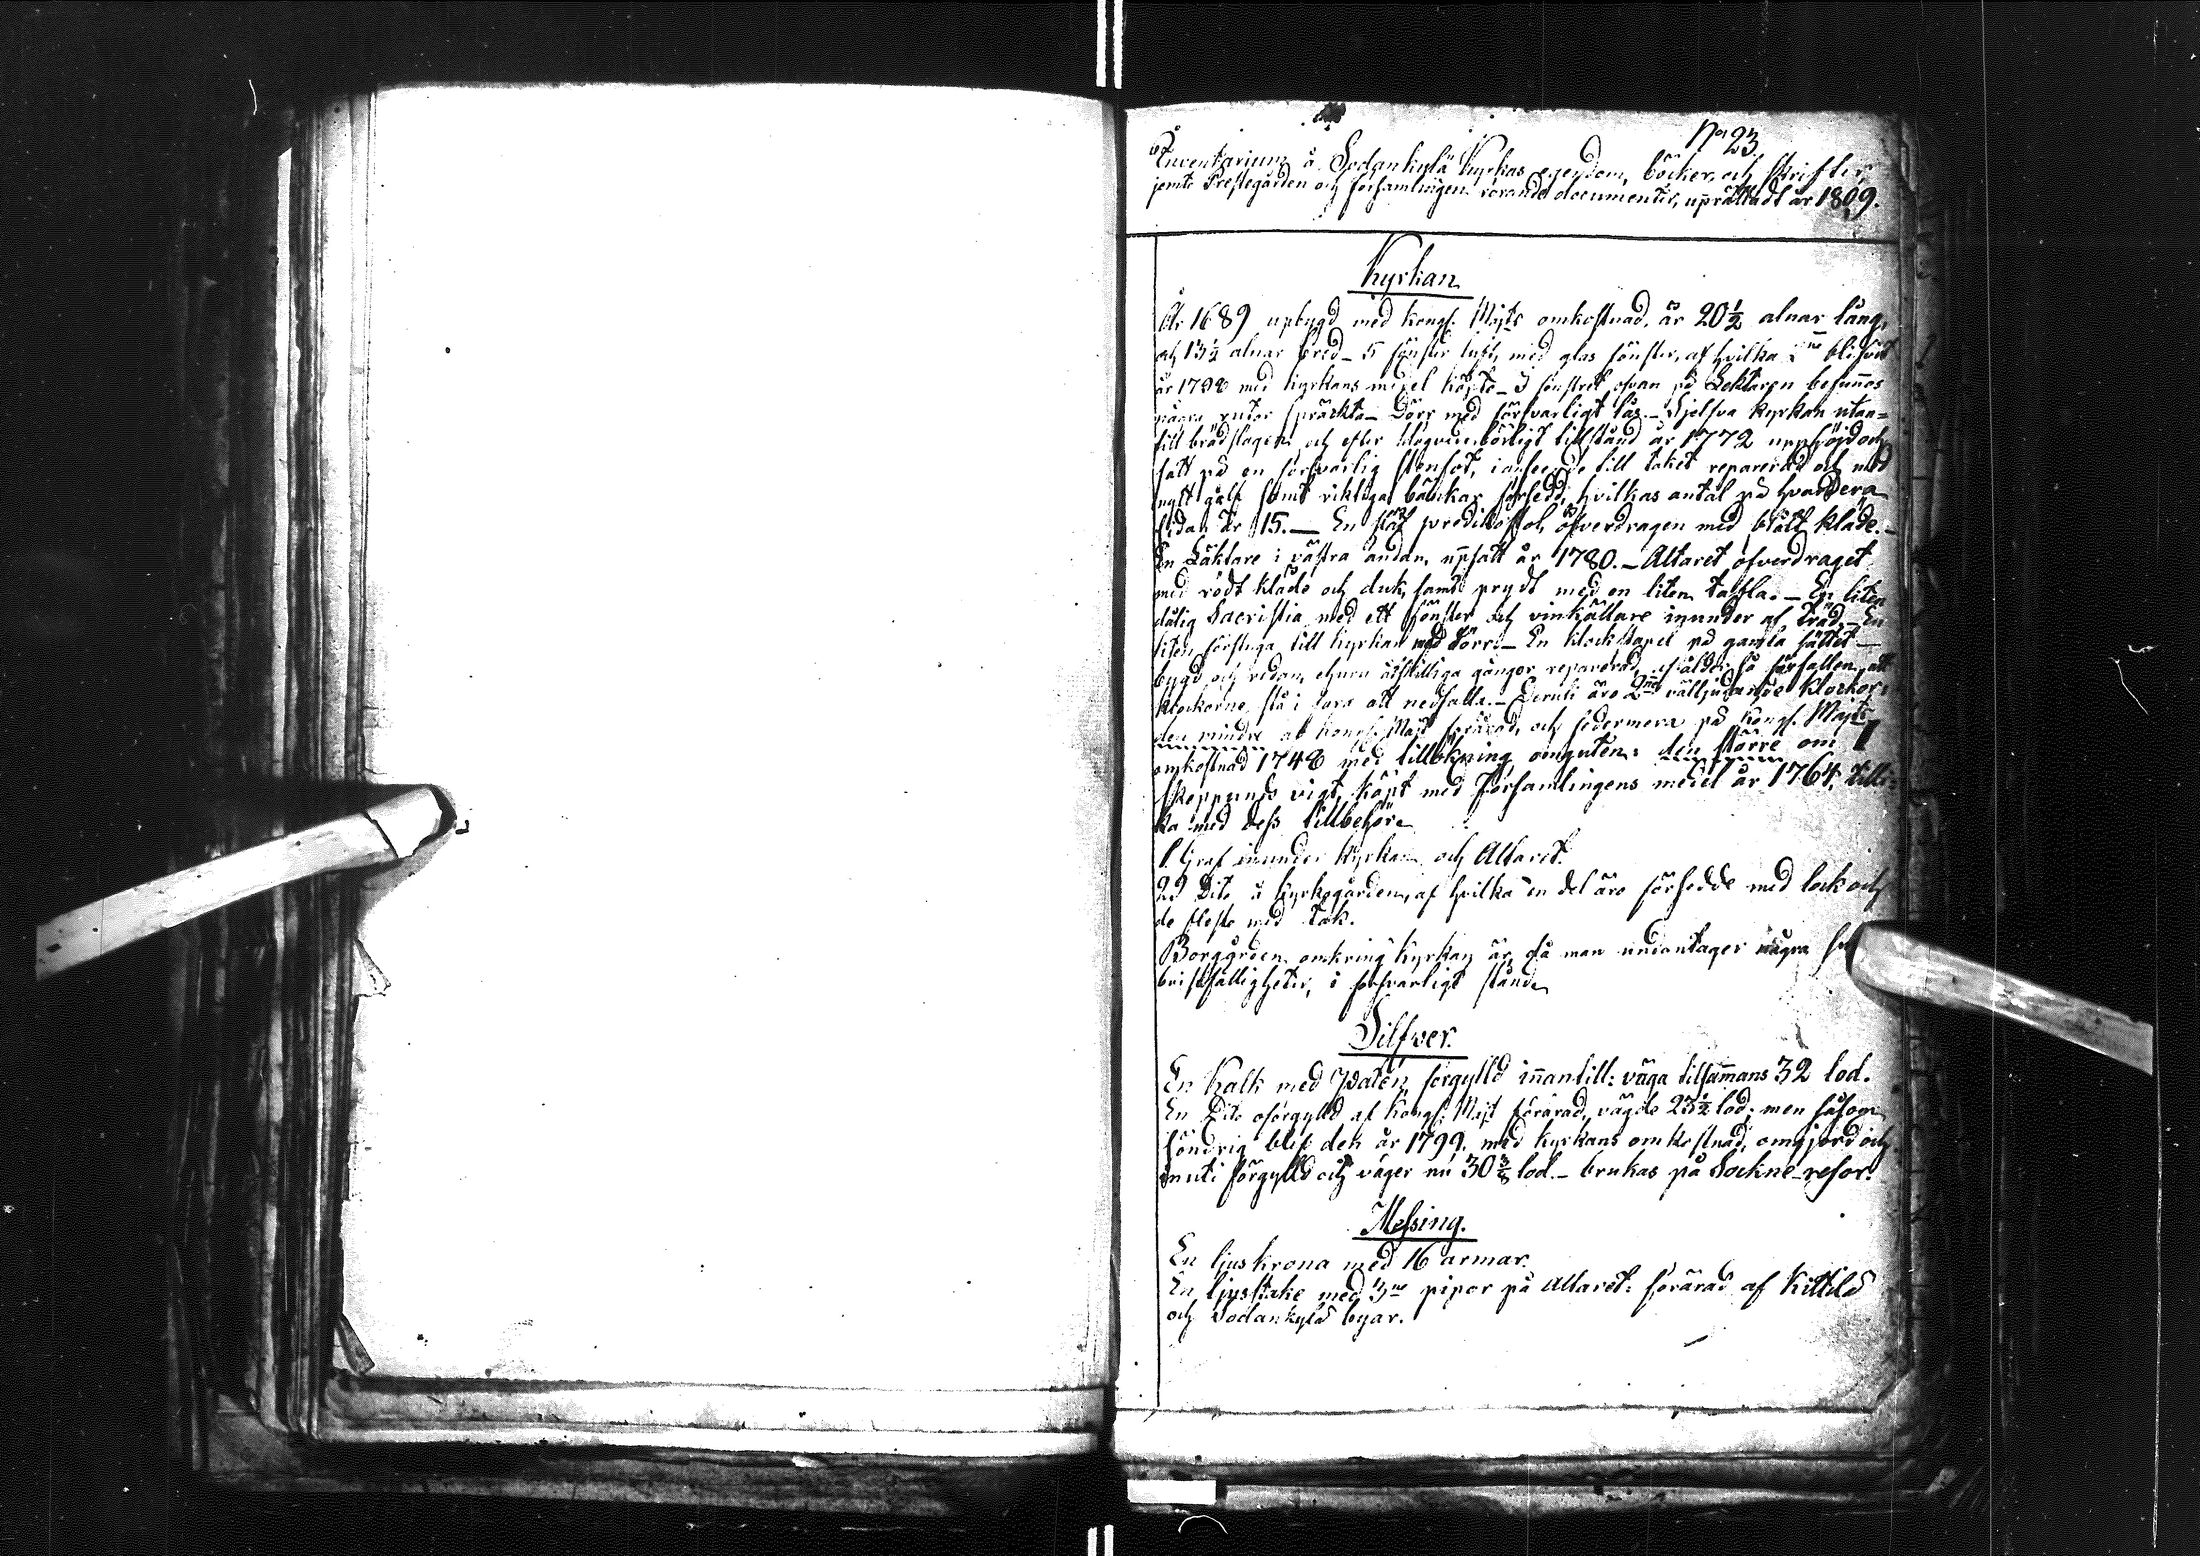 No 23.
Inventarium å Sodankylä Kyrkas egendom, böcker och skrifter,
jemte Prestegården och församlingen rörande documenter, uprättadt år 1809.
Kyrkan
År 1689 upbygd med Kongl. Majts omkostnad, är 20 1/2 alnar lång,
och 13 1/2 alnar bred_ 5 fönster luft, med glas fönster, af hvilka 2ne blifvit
år 1798 med kyrkans medel köpte_ I fönstret ofvan på Läktaren befunnos
några rutor spräckta_ Dörr med försvarligt lås._ Sjelfva kyrkan utan=
till brädslagen och efter högvederbörligt tillstånd år 1772 upphöjd och
satt på en försvarlig stenfot, i anseende till taket reparerad och med
nytt golf samt riktiga bänkar försedd, hvilkas antal på hvardera
sidan är 15._ En predikostol, öfverdragen med blått kläde._
En Läktare i västra ändan, uppsatt år 1780._ Altaret öfverdraget
med rödt kläde och duk, samt prydt med en liten tafla._ En liten
dålig Sacristia med ett fönster och vinkällare inunder af träd._ En
liten förstuga till kyrkan med dörr._ En klockstapel på gamla sättet_
bygd och redan, ehuru åtskilliga gångor reparerad, af ålder så förfallen, att
klockorne stå i fara att nedfalla._ Deruti äro 2ne välljudande klockor:
den mindre af Kongl. Majt förärad, och sedermera på Kongl. Majts
omkostnad 1748 med tillökning omguten: den större om 1
Skeppunds vigt, köpt med Församlingens medel år 1764, tilli=
ka med dess tillbehör.
1. Graf inunder kyrkan och Altaret.
22 Dito å kyrkogården, af hvilka en del äro försedde med lock och
de fleste med tak.
Borggården omkring kyrkan är, då man undantager några
bristfälligheter, i försvarligt stånd.
Silfver.
En Kalk med Patén, förgylld innantill: väga tillsammans 32 lod.
En Dito oförgylld af Kongl. Majt förärad, vägde 23 1/2 lod; men såsom
söndrig blef den år 1799. med kyrkans omkostnad, omgjord och
inuti förgylld och väger nu 30 3/8 lod._ brukas på Sockne-resor.
Messing.
En ljuskrona med 16 armar.
En ljusstake med 3ne pipor på Altaret: förärad af Kittilä
och Sodankylä byar.